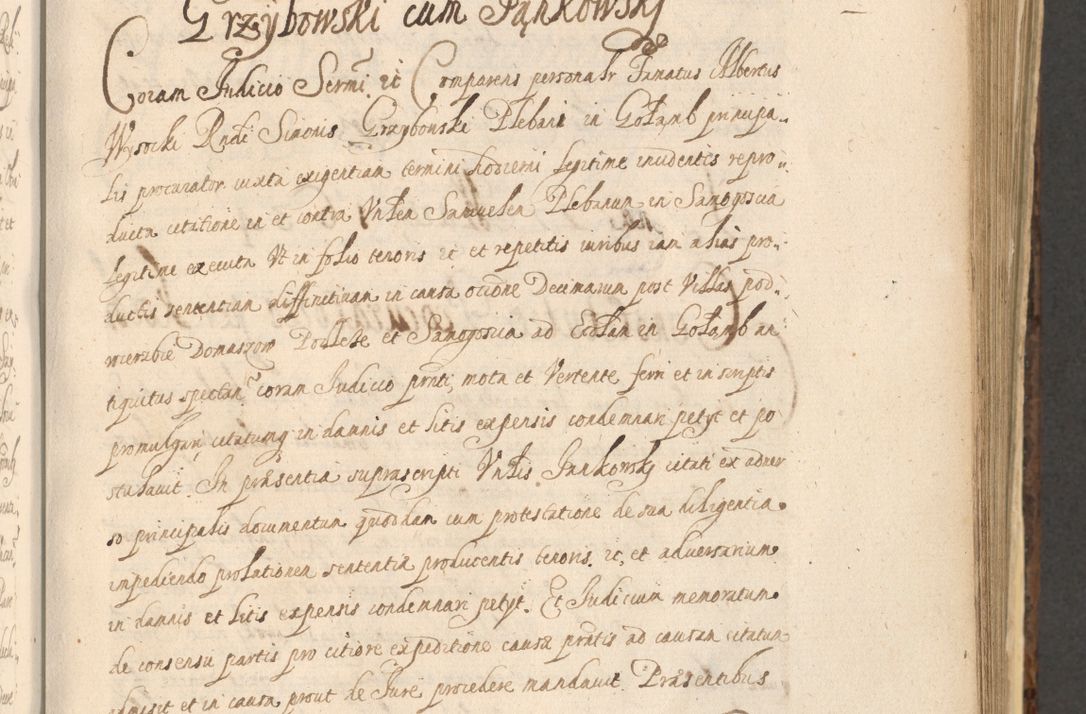 Grzybowski cum Jąnkowskj
Coram Judicio Sermi. ic Comparens personalr Famatus Albertus
Wysocki Rndi Simonis Grzybowski Plebani in Gołąmb principa„
lis procurator iuxta exigentiam termini hodierni legitime incidentis repro„
ducta citatione in et contra Vnłem Samuelem Plebanum in Samogoscia
legitime executa Vt in folio tenoris ic et repetitis iuribus iam alias pro„
ductis sententiam diffinitiuam in causa occione Decimarum post Villas pod„
wierzbie Domaszow Połłcke et Samogoscia ad Ecclam in Gołamb an
tiquitus spectan. coram Judicio prnti, mota et Vertente ferri et in scriptis
promulgari citatumq in damnis et litis expensis condemnari petyt et po
stulauit. In præsentia suprascripti Vnłis Jankowskj citati ex aduer
so principalis documentum quoddam cum protestatione de sua diligentia
impediendo prolationem sententiæ producentis tenoris. ic, et aduersarium
in damnis et litis expensis condemnari petyt. Et Judicium memoratum
de consensu partis pro citiore expeditione causæ prntis ad causam citatum
admisit et in causa prout de Jure procedere mandauit. Præsentibus